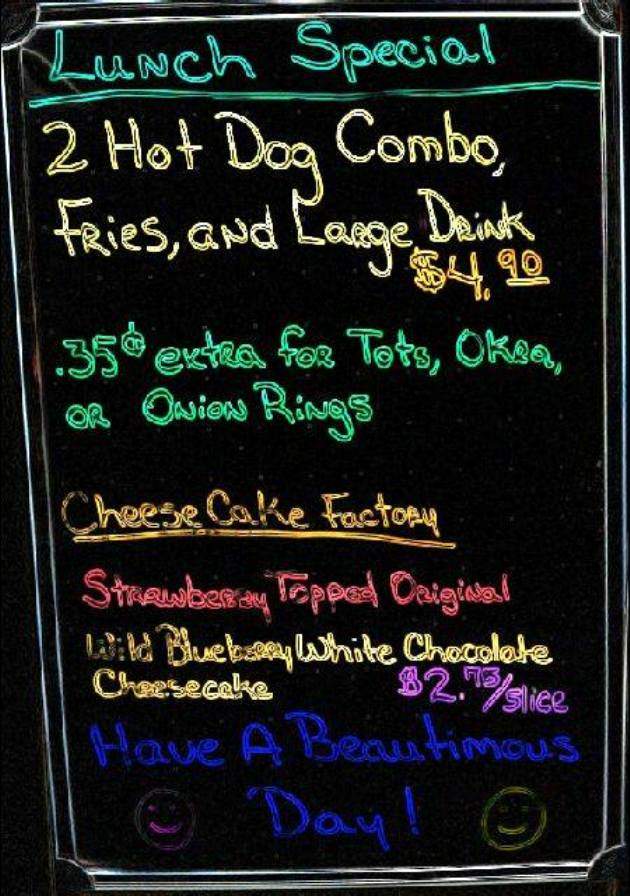 Lunch Special
2 Hot Dog Combo,
Fries, and Large Drink
$4.90
.35¢ extra for Tots, Okra,
or Onion Rings
Cheese Cake Factory
Strawberry Topped Original
Wild Blueberry White Chocolate
Cheesecake $2.75/slice
Have A Beautimous
Day!